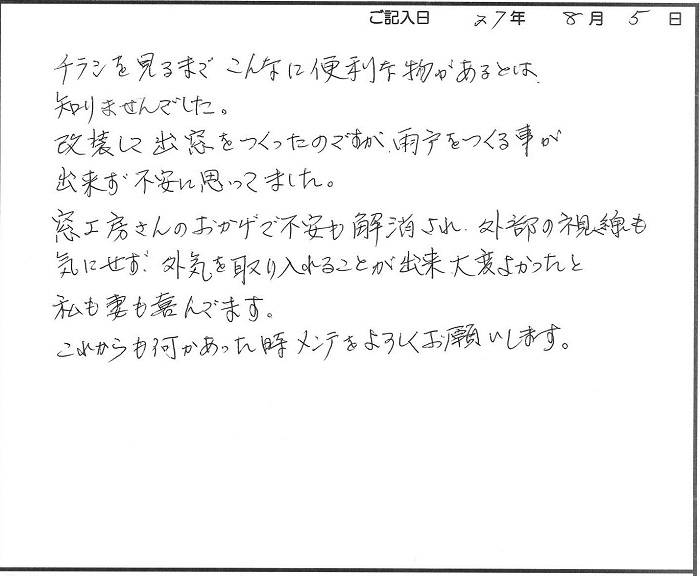 ご記入日 27年 8月 5日
チラシを見るまでこんなに便利な物があるとは、
知りませんでした。
改装して出窓をつくったのですが、雨戸をつくる事が
出来ず不安に思ってました。
窓工房さんのおかげで不安も解消され、外部の視線も
気にせず、外気を取り入れることが出来大変よかったと
私も妻も喜んでます。
これからも何かあった時メンテをよろしくお願いします。